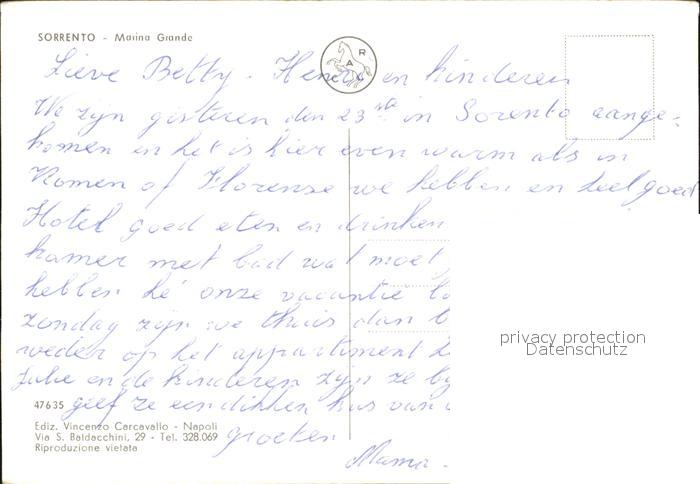 SORRENTO - Marina Grande
R
A
Lieve Betty - Henri en kinderen
We zijn gisteren den 23ste in Sorento aange-
komen en het is hier even warm als in
Romen of Florense we hebben en heel goed
Hotel goed eten en drinken
kamer met bad wat moet
hebben hé onze vacantie
zondag zijn we thuis dan
weder op het appartiment
Julie en de kinderen zijn ze by
geef ze een dikken kus van
groeten
Mama -
47635
Ediz. Vincenzo Carcavallo - Napoli
Via S. Baldacchini, 29 - Tel. 328.069
Riproduzione vietata
privacy protection
Datenschutz